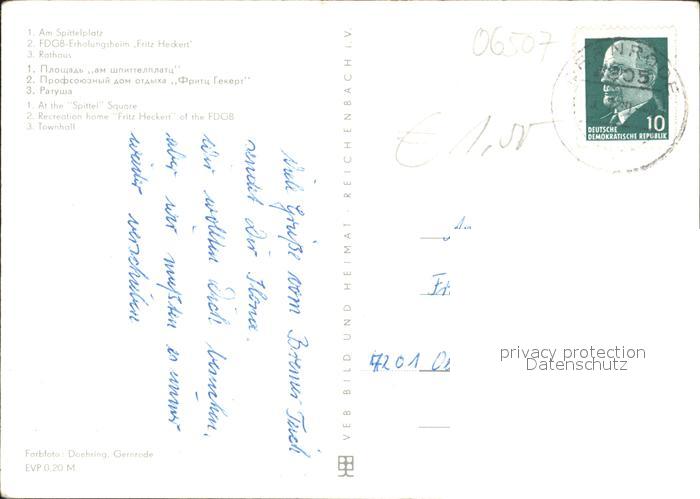 1. Am Spittelplatz
2. FDGB-Erholungsheim „Fritz Heckert"
3. Rathaus
1. Площадь ,,ам шпиттелплатц"
2. Профсоюзный дом отдыха ,,Фритц Гекерт"
3. Ратуша
1. At the "Spittel" Square
2. Recreation home "Fritz Heckert" of the FDGB
3. Townhall
Viele Grüße vom Bremer Teich
sendet Dir Ilona.
Wir wollten Dich besuchen,
aber wir mußten es immer
wieder verschieben
VEB BILD UND HEIMAT · REICHENBACH I.V.
06507
€ 1,00
10
DEUTSCHE
DEMOKRATISCHE REPUBLIK
Fr
7201
privacy protection
Datenschutz
Farbfoto: Doehring, Gernrode
EVP 0,20 M